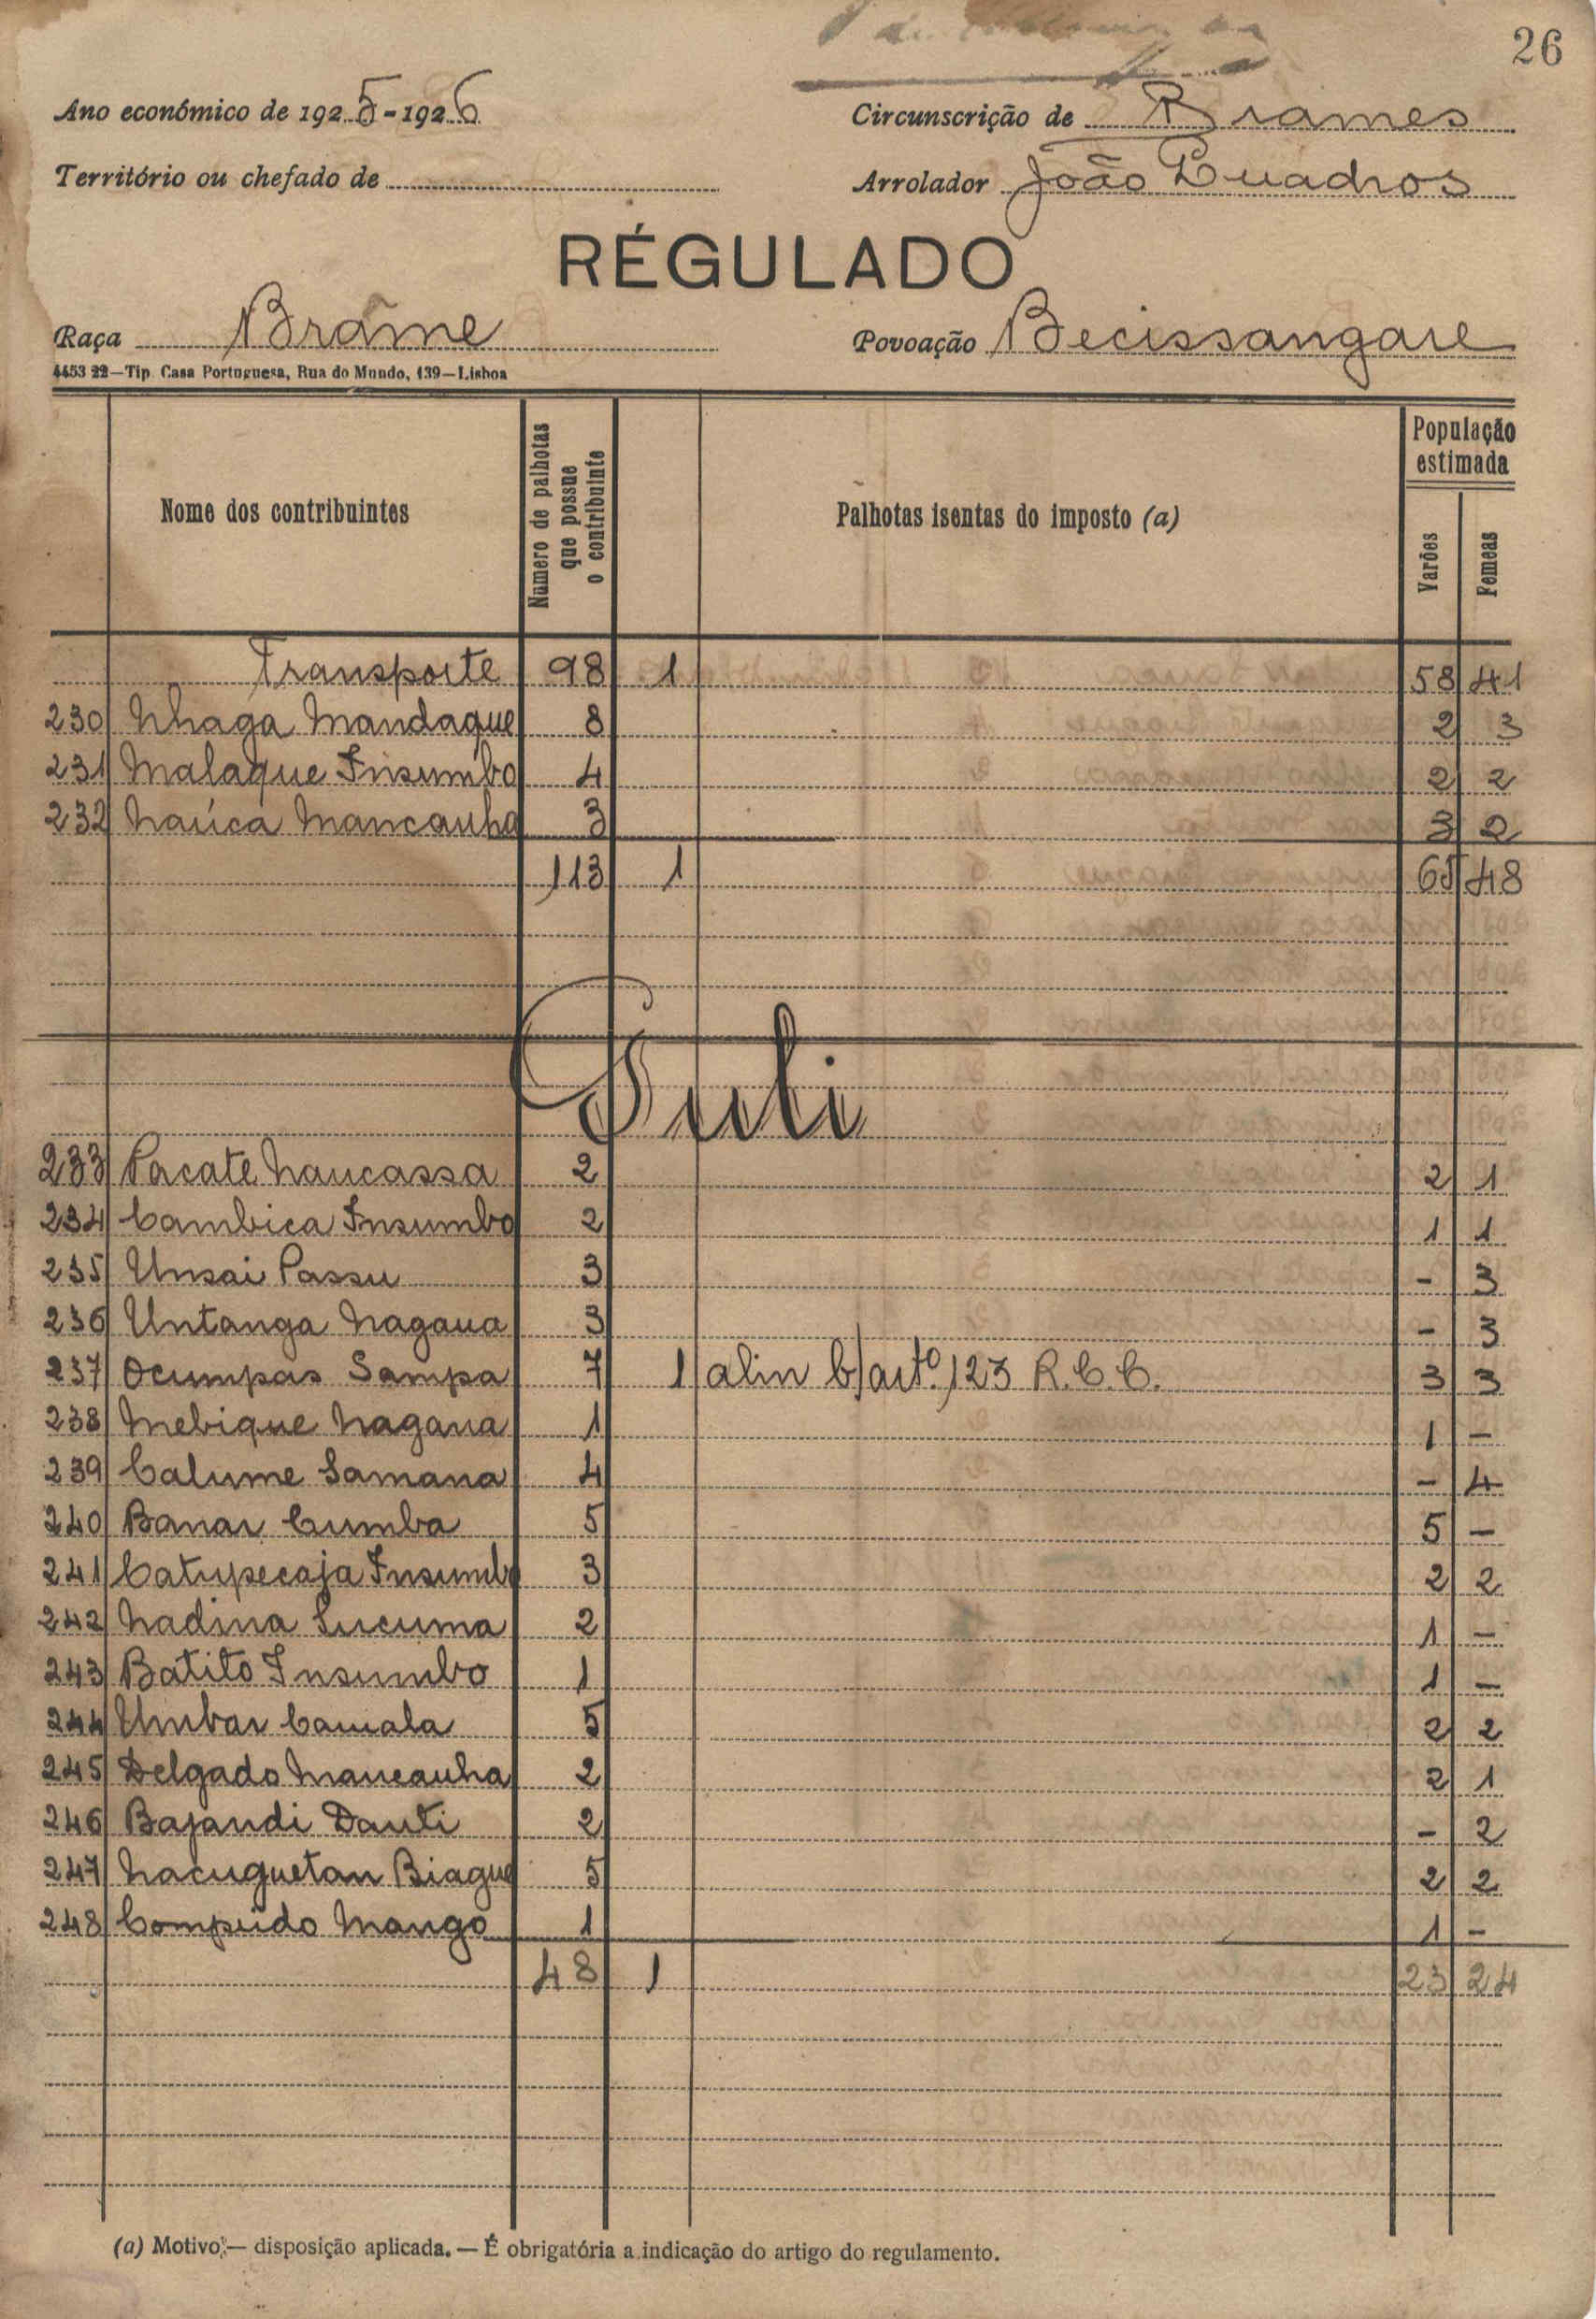 26
Ano económico de 1925-1926 Circunscrição de Brames
Território ou chefado de Arrolador João Quadros
RÉGULADO
Raça Brame Povoação Becissangare
4453 22—Tip. Casa Portuguesa, Rua do Mundo, 139—Lisboa
Nome dos contribuintes Numero de palhotas que possue o contribuinte Palhotas isentas do imposto (a) População estimada Varões Femeas
Transporte 98 1 58 41
230 Nhaga Mandaque 8 2 3
231 Malaque Insumbo 4 2 2
232 Naúca Mancanha 3 3 2
113 1 65 48
Puli
233 Pacate Naucassa 2 2 1
234 Cambica Insumbo 2 1 1
235 Unsai Passu 3 - 3
236 Untanga Nagana 3 - 3
237 Ocumpas Sampa 7 1 alin b) artº 123 R.C.C. 3 3
238 Mebique Nagana 1 1 -
239 Calume Samana 4 - 4
240 Banar Cumba 5 5 -
241 Catupecaja Insumbo 3 2 2
242 Nadina Sucuma 2 1 -
243 Batito Insumbo 1 1 -
244 Umbar Camala 5 2 2
245 Delgado Mancanha 2 2 1
246 Bajandi Danti 2 - 2
247 Nacuguetan Biague 5 2 2
248 Compudo Mango 1 1 -
48 1 23 24
(a) Motivo:— disposição aplicada. — É obrigatória a indicação do artigo do regulamento.